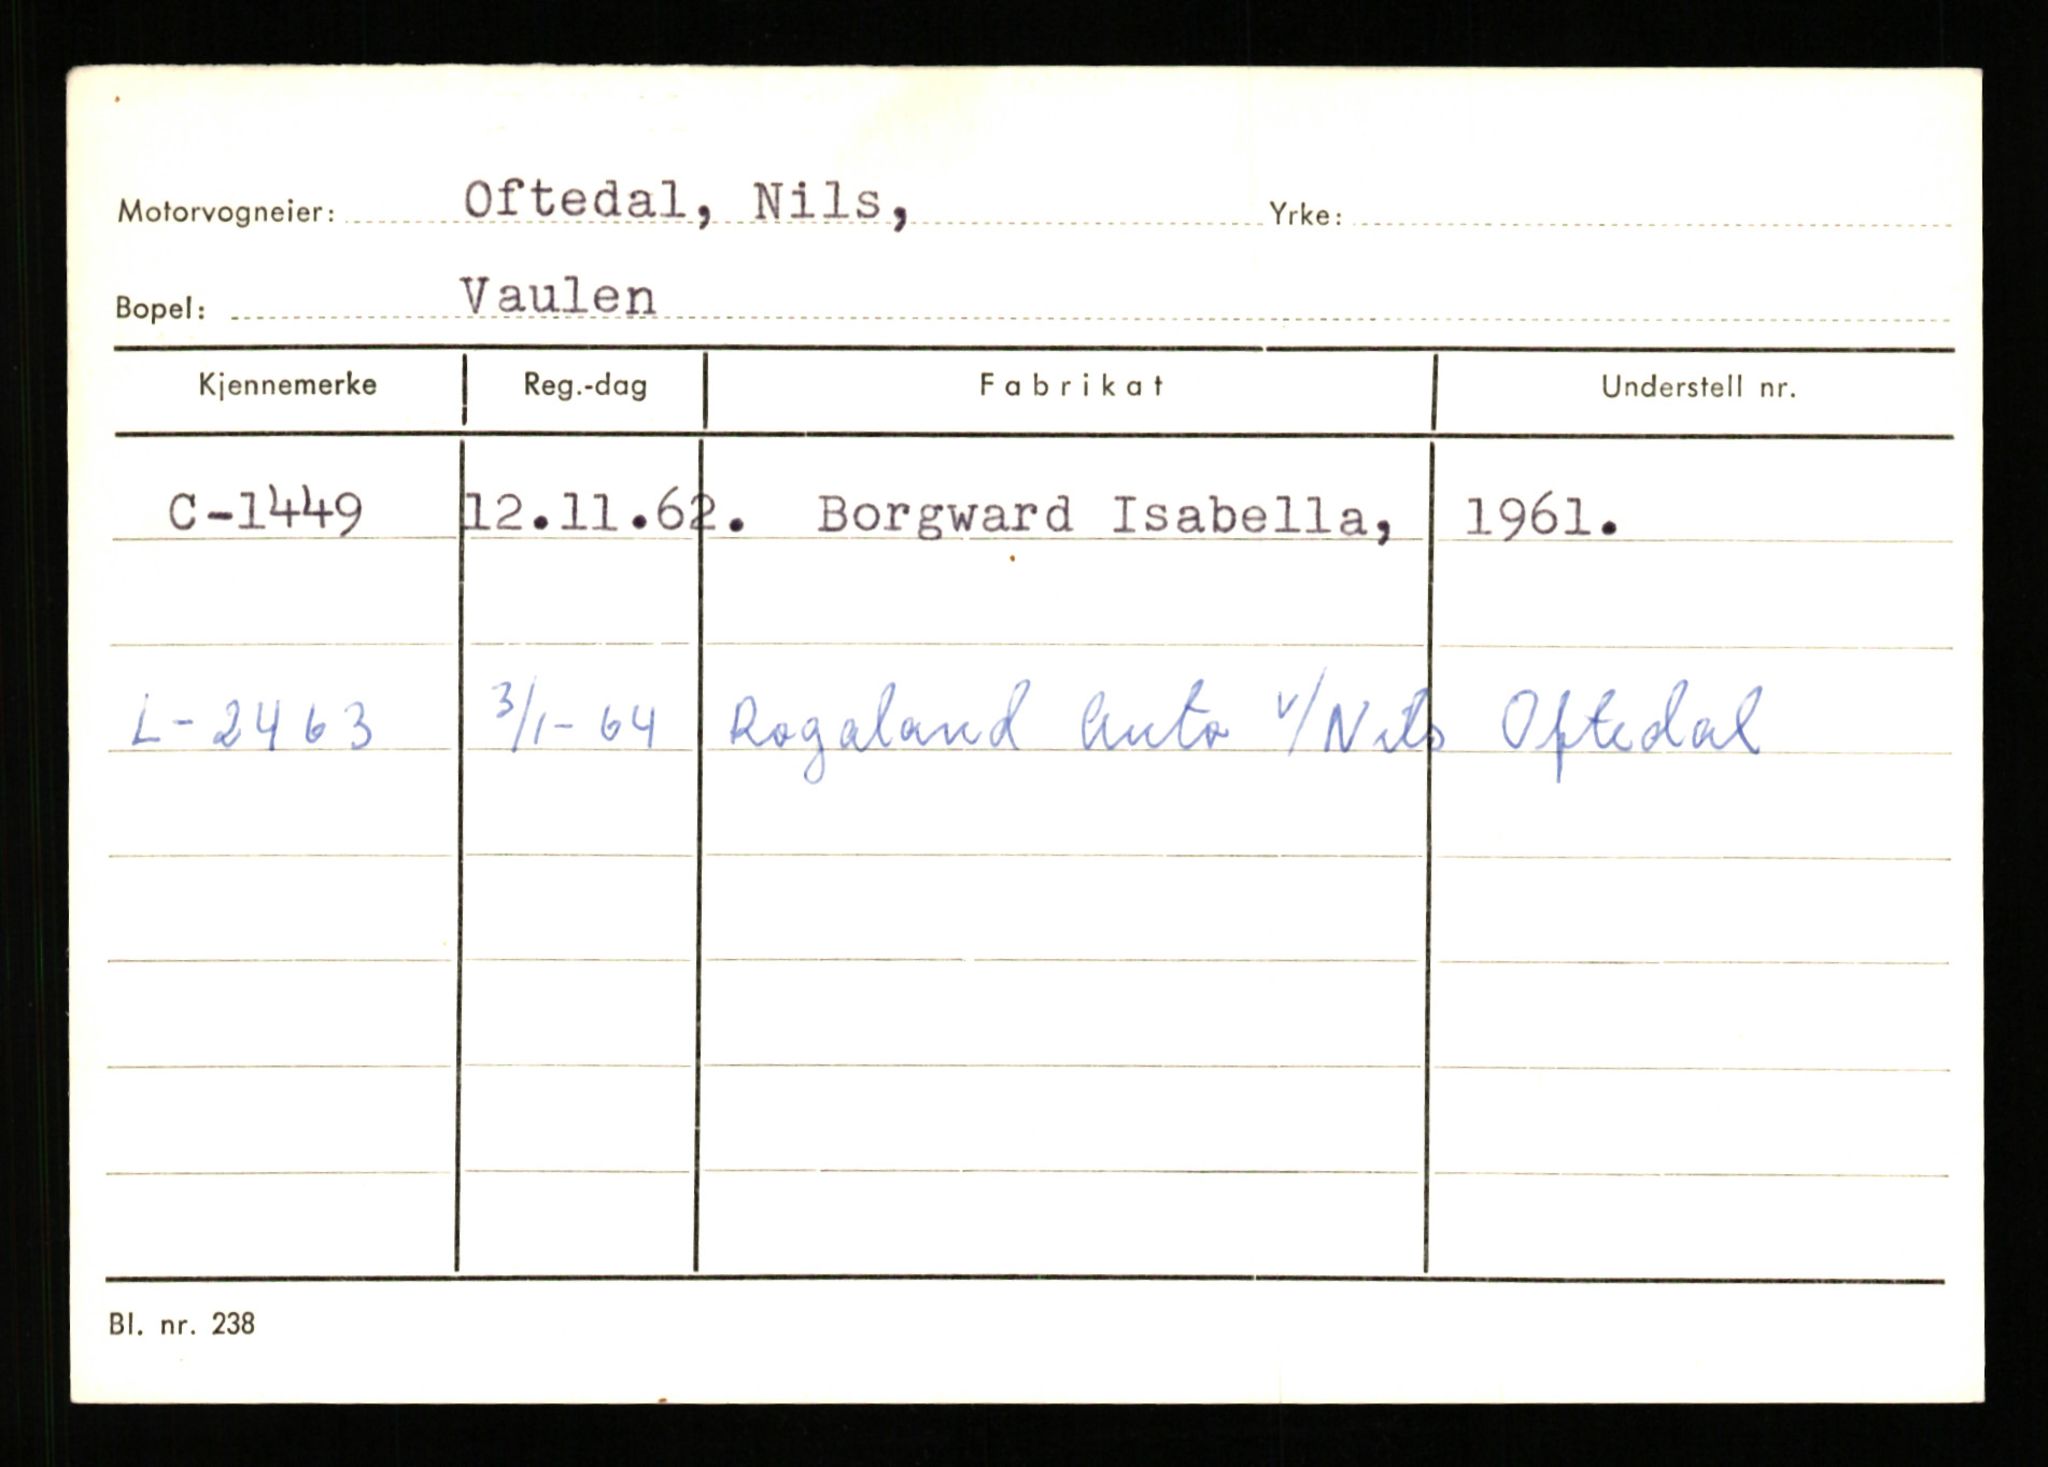 Motorvogneier: Oftedal, Nils, Yrke:
Bopel: Vaulen
Kjennemerke Reg.-dag Fabrikat Understell nr.
C-1449 12.11.62. Borgward Isabella, 1961.
L-2463 3/1-64 Rogaland Auto v/Nils Oftedal
Bl. nr. 238